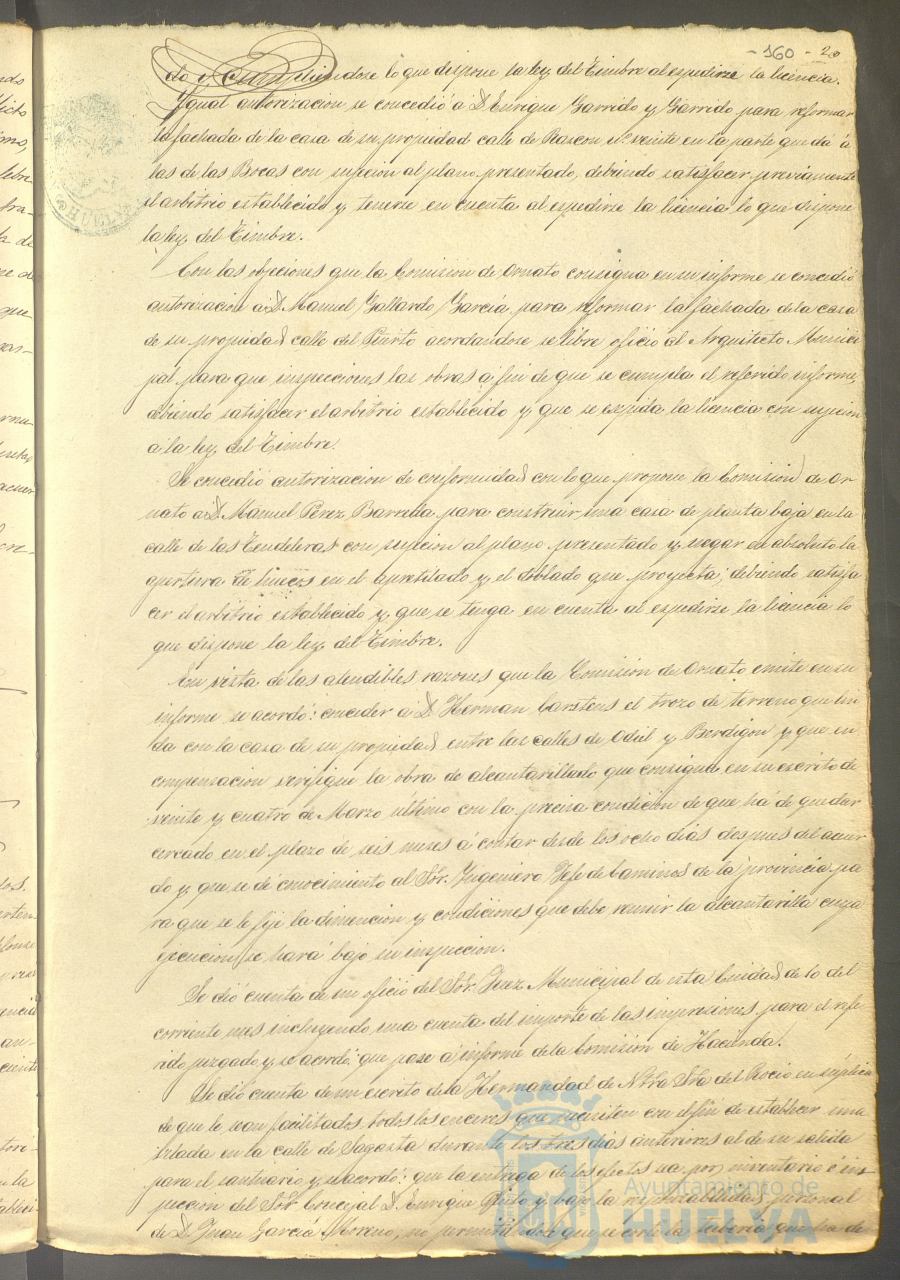 - 160 - 20
do y cumpliendose lo que dispone la ley del Timbre al espedirse la licencia.
Ygual autorizacion se concedió á D. Enrique Garrido y Garrido para reformar
la fachada de la casa de su propiedad calle de Rascon nº veinte en la parte que dá á
las de las Bocas con sujecion al plano presentado, debiendo satisfacer previamente
el arbitrio establecido y tenerse en cuenta al espedirse la licencia lo que dispone
la ley del Timbre.
Con las objeciones que la Comision de Ornato consigna en su informe se concedió
autorizacion a D. Manuel Gallardo Garcia para reformar la fachada de la casa
de su propiedad calle del Puerto acordandose se libre oficio al Arquitecto Munici
pal para que inspeccione las obras a fin de que se cumpla el referido informe,
debiendo satisfacer el arbitrio establecido y que se expida la licencia con sujecion
a la ley del Timbre.
Se concedió autorizacion de conformidad con lo que propone la Comision de Or
nato a D. Manuel Perez Barreda para construir una casa de planta baja en la
calle de las Tendeleras con sujecion al plano presentado y negar en absoluto la
apertura de huecos en el apretilado y el doblado que proyecta; debiendo satisfa
cer el arbitrio establecido y que se tenga en cuenta al espedirse la licencia lo
que dispone la ley del Timbre.
En vista de las atendibles razones que la Comision de Ornato emite en su
informe se acordó: conceder a D. Herman Carstens el trozo de terreno que lin
da con la casa de su propiedad entre las calles de Odiel y Berdigon y que en
compensacion verifique la obra de alcantarillado que consigna en su escrito de
veinte y cuatro de Marzo ultimo con la precisa condicion de que há de quedar
cercado en el plazo de seis meses á contar desde los ocho dias despues del acuer
do y que se dé conocimiento al Sór. Yngeniero Jefe de Caminos de la provincia pa
ra que se le fije la dimencion y condiciones que debe reunir la alcantarilla cuya
ejecucion se hará bajo su inspeccion.
Se dió cuenta de un oficio del Sór. Juez Municipal de esta Ciudad de 10 del
corriente mes incluyendo una cuenta del importe de las impresiones para el refe
rido juzgado y se acordó: que pase á informe de la Comision de Hacienda.
Se dió cuenta de un escrito de la Hermandad de Ntra Sra del Rocio en suplica
de que le sean facilitados todos los enceres que necesiten con el fin de establecer una
velada en la calle de Sagasta durante los tres dias anteriores al de su salida
para el santuario y se acordó: que la entrega de los efectos sea por inventario é ins
peccion del Sór. Concejal D. Enrique y bajo la responsabilidad personal
de D. Juan Garcia Moreno, no permitiendose que se corte la tuberia que ha de
HUELVA
Ayuntamiento de
HUELVA